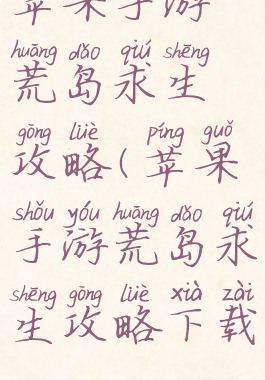 苹果手游
huāng dǎo qiú shēng
荒岛求生
gōng lüè píng guǒ
攻略(苹果
shǒu yóu huāng dǎo qiú
手游荒岛求
shēng gōng lüè xià zài
生攻略下载